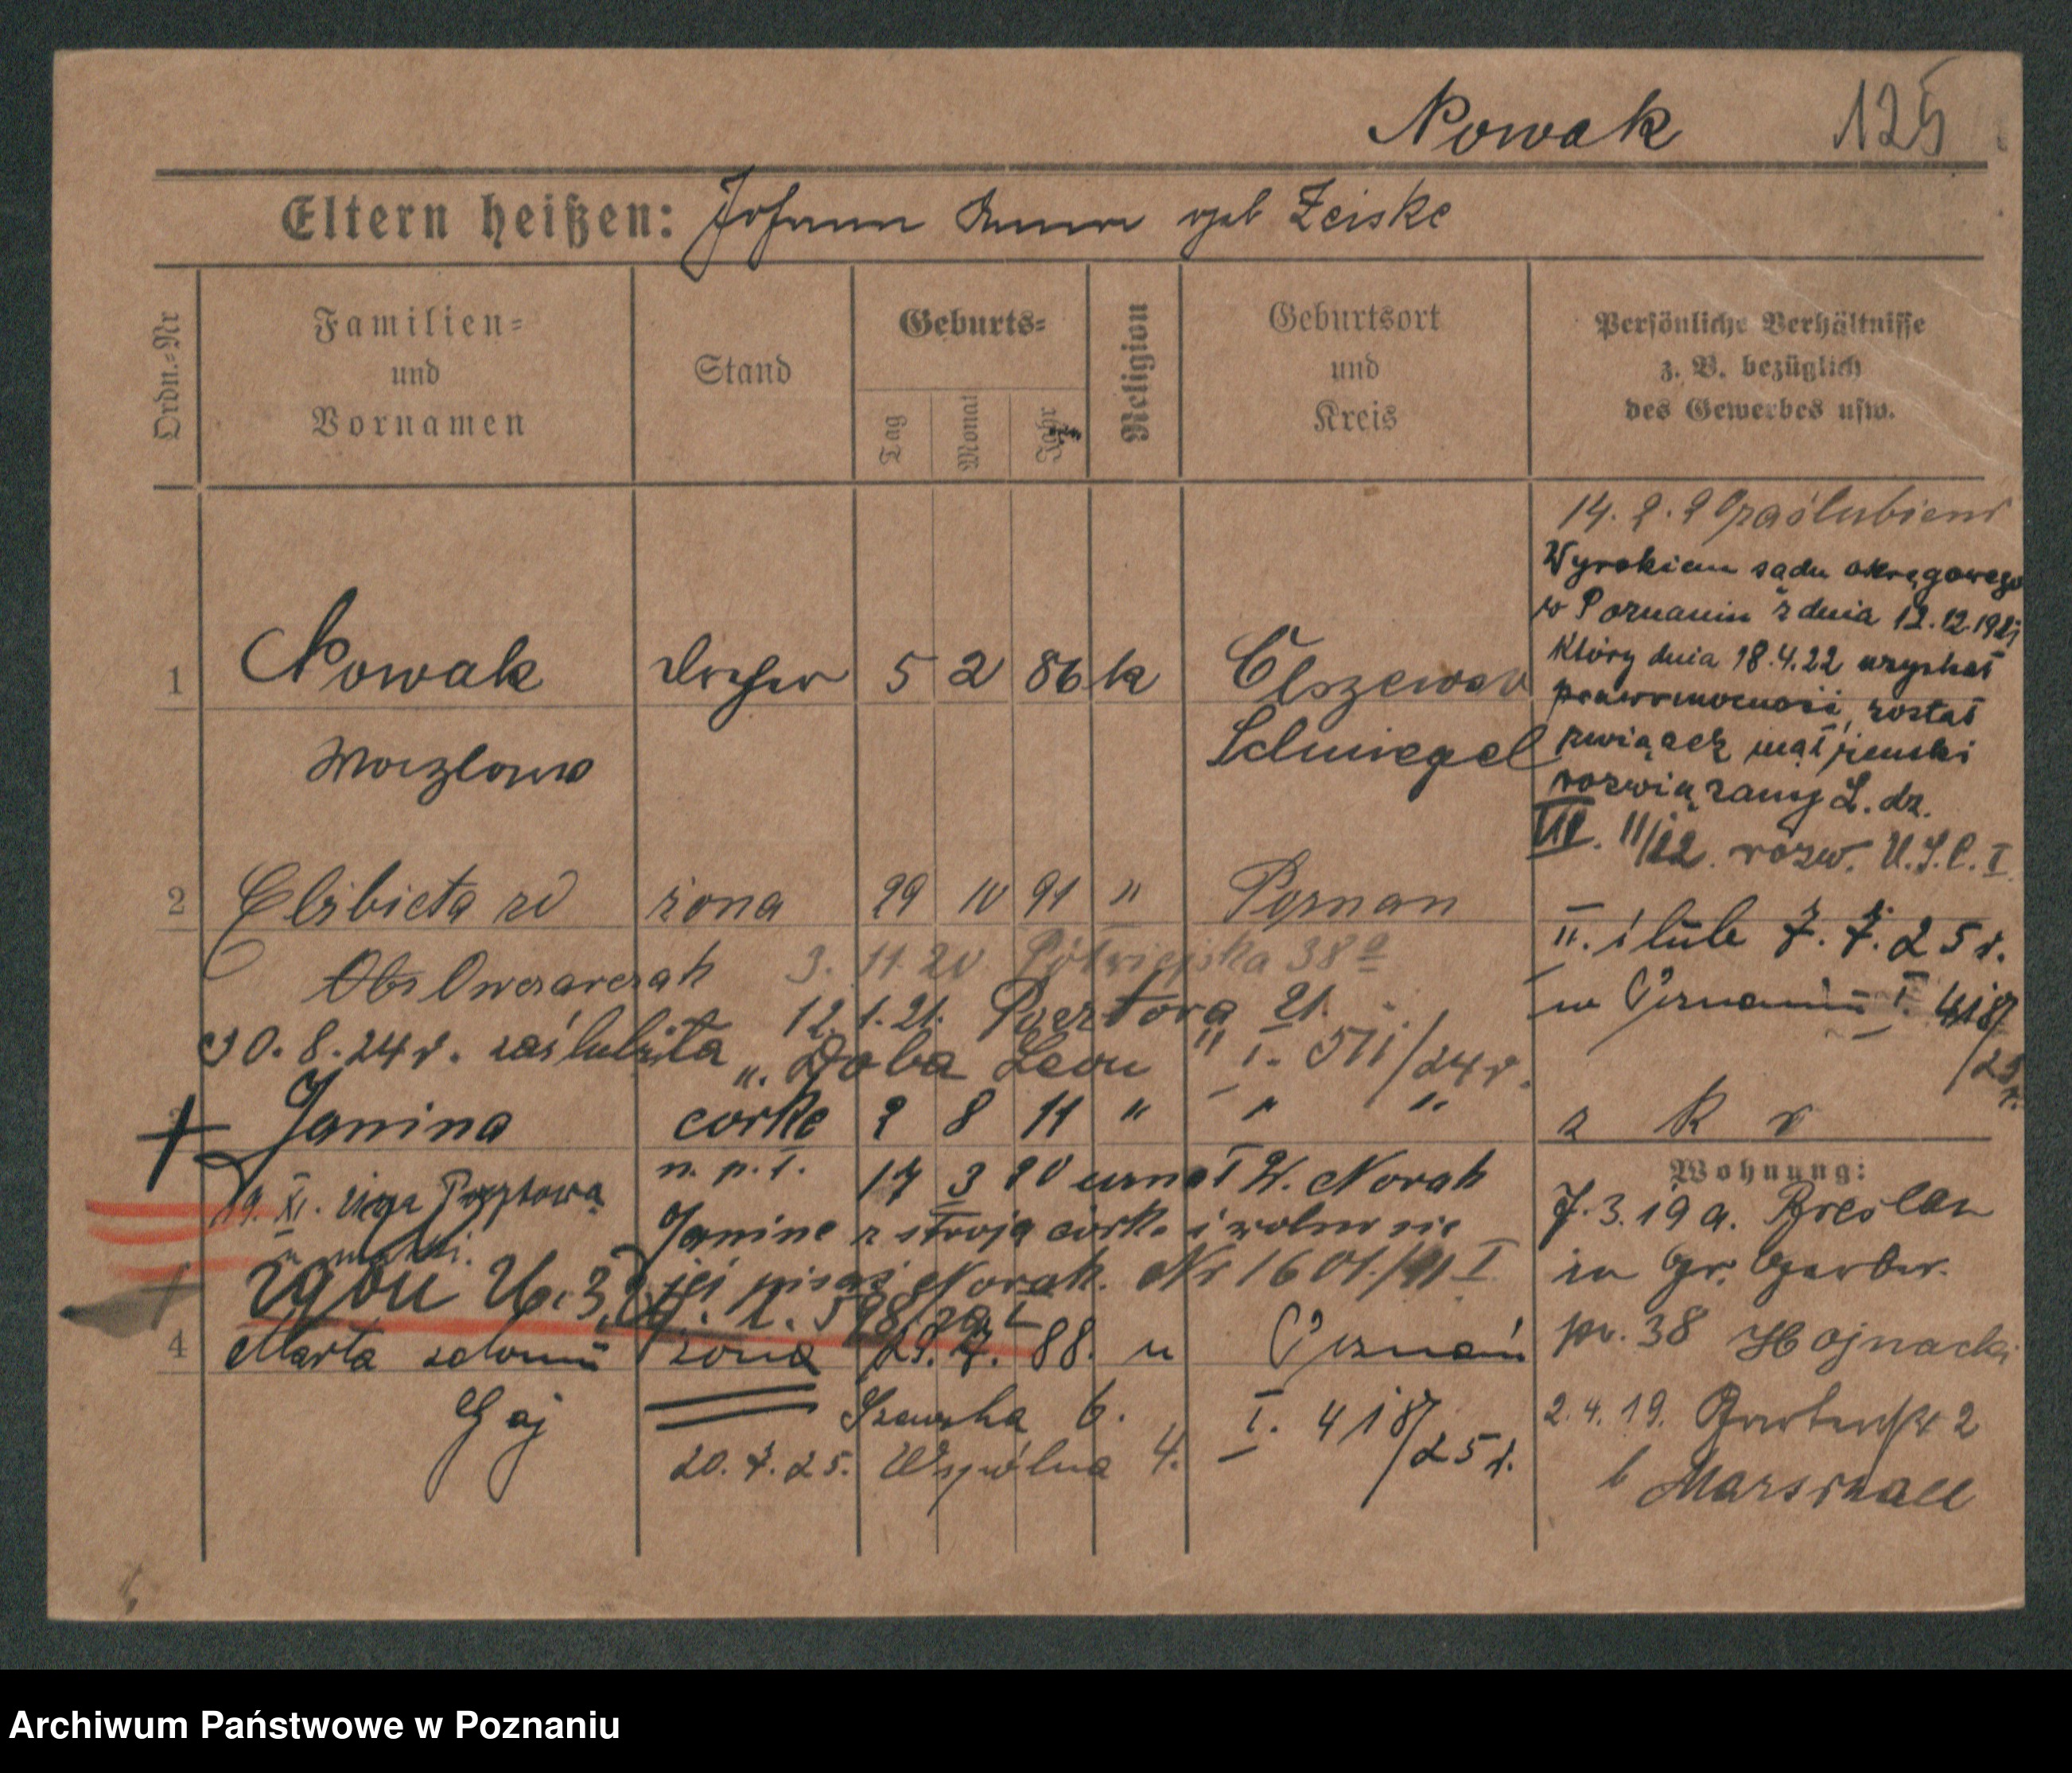 Nowak 125
Eltern heißen: Johann Anna geb Zeiske
Ordn.-Nr
Familien-
und
Vornamen
Stand
Geburts-
Tag
Monat
Jahr
Religion
Geburtsort
und
Kreis
Persönliche Verhältnisse
z. B. bezüglich
des Gewerbes usw.
14. 2. 20
Wyrokiem sądu okręgowego
w Poznaniu z dnia 12.12.1921
który dnia 18.4.22 uzyskał
prawomocność, został
związek małżeński
rozwiązany L. dz.
III. 11/22. rozw. U.S.C. I.
1 Nowak Dreher 5 2 86 k
Schmiegel
2 Elżbieta zd żona 29 10 91 " Poznan
Owczarczak 3. 11. 20 Półwiejska 38a
12. 1. 21. Pocztowa 21.
30. 8. 24 r. zaślubiła " Doba Leon " I. 511/24 r.
II. ślub 7. 7. 25 r.
w Poznaniu I. 418/
/25 r.
Janina córka 2 8 11 " " "
n. p. ż. 17 3 20 uznał W. Nowak
19. XI. Pocztowa
u matki.
Janinę z swoją córkę i wolno się
jej pisać Nowak. Nr 1601./11 I
zgon 26.3.29. L. 598/29 I
4 Marta żona 29. 7. 88. u Poznań
Gaj Szewska 6. I. 418/25 r.
20. 7. 25. Wspólna 4.
a k v
Wohnung:
7. 3. 19 a. Breslau
in Gr. Gerber.
pr. 38 Hojnacki
2. 4. 19. 2
b Marschall
Archiwum Państwowe w Poznaniu